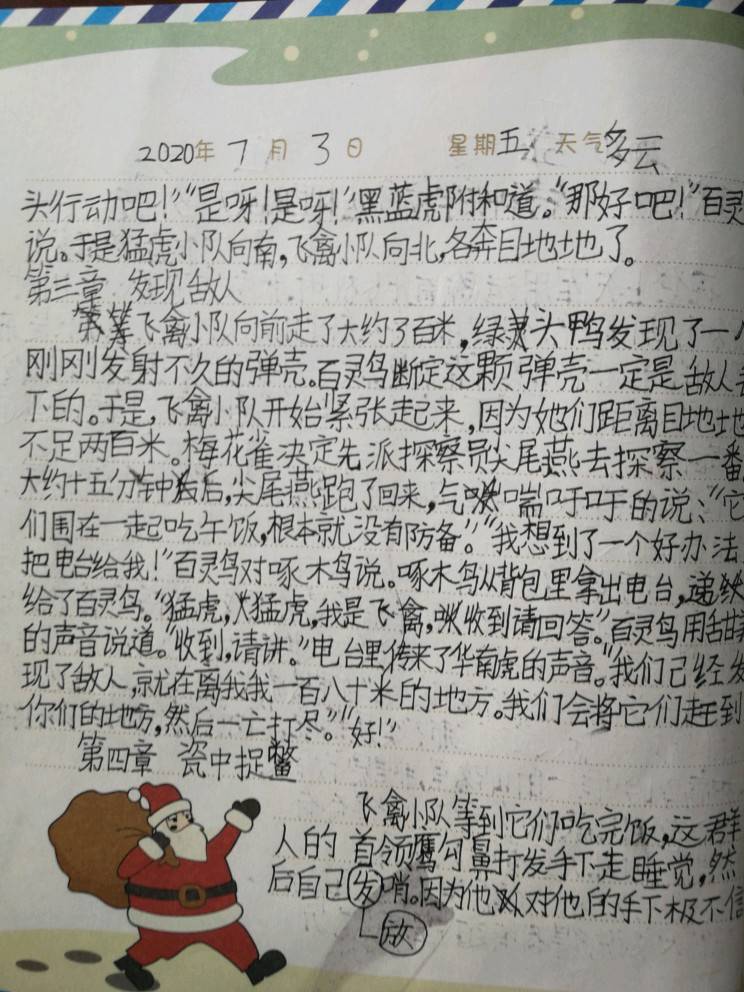 2020年7月3日 星期五 天气多云
头行动吧!”“是呀!是呀!”黑蓝虎附和道。“那好吧!”百灵
说。于是猛虎小队向南,飞禽小队向北,各奔目地地了。
第三章 发现敌人
飞禽小队向前走了大约了百米,绿头鸭发现了一
刚刚发射不久的弹壳。百灵鸟断定这颗弹壳一定是敌人
下的。于是,飞禽小队开始紧张起来,因为她们距离目地地
不足两百米。梅花雀决定先派探察员尖尾燕去探察一番
大约十五分钟后,尖尾燕跑了回来,气喘吁吁的说:“它
们围在一起吃午饭,根本就没有防备。”“我想到了一个好办法
把电台给我!”百灵鸟对啄木鸟说。啄木鸟从背包里拿出电台,递
给了百灵鸟。“猛虎,猛虎,我是飞禽,收到请回答。”百灵鸟用甜
的声音说道。“收到,请讲。”电台里传来了华南虎的声音。“我们己经发
现了敌人,就在离我我一百八十米的地方。我们会将它们赶到
你们的地方,然后一亡打尽。”“好!”
第四章 瓷中捉鳖
飞禽小队等到它们吃完饭,这群
人的首领鹰勾鼻打发手下走睡觉,然
后自己发哨。因为他对他的手下极不信
放